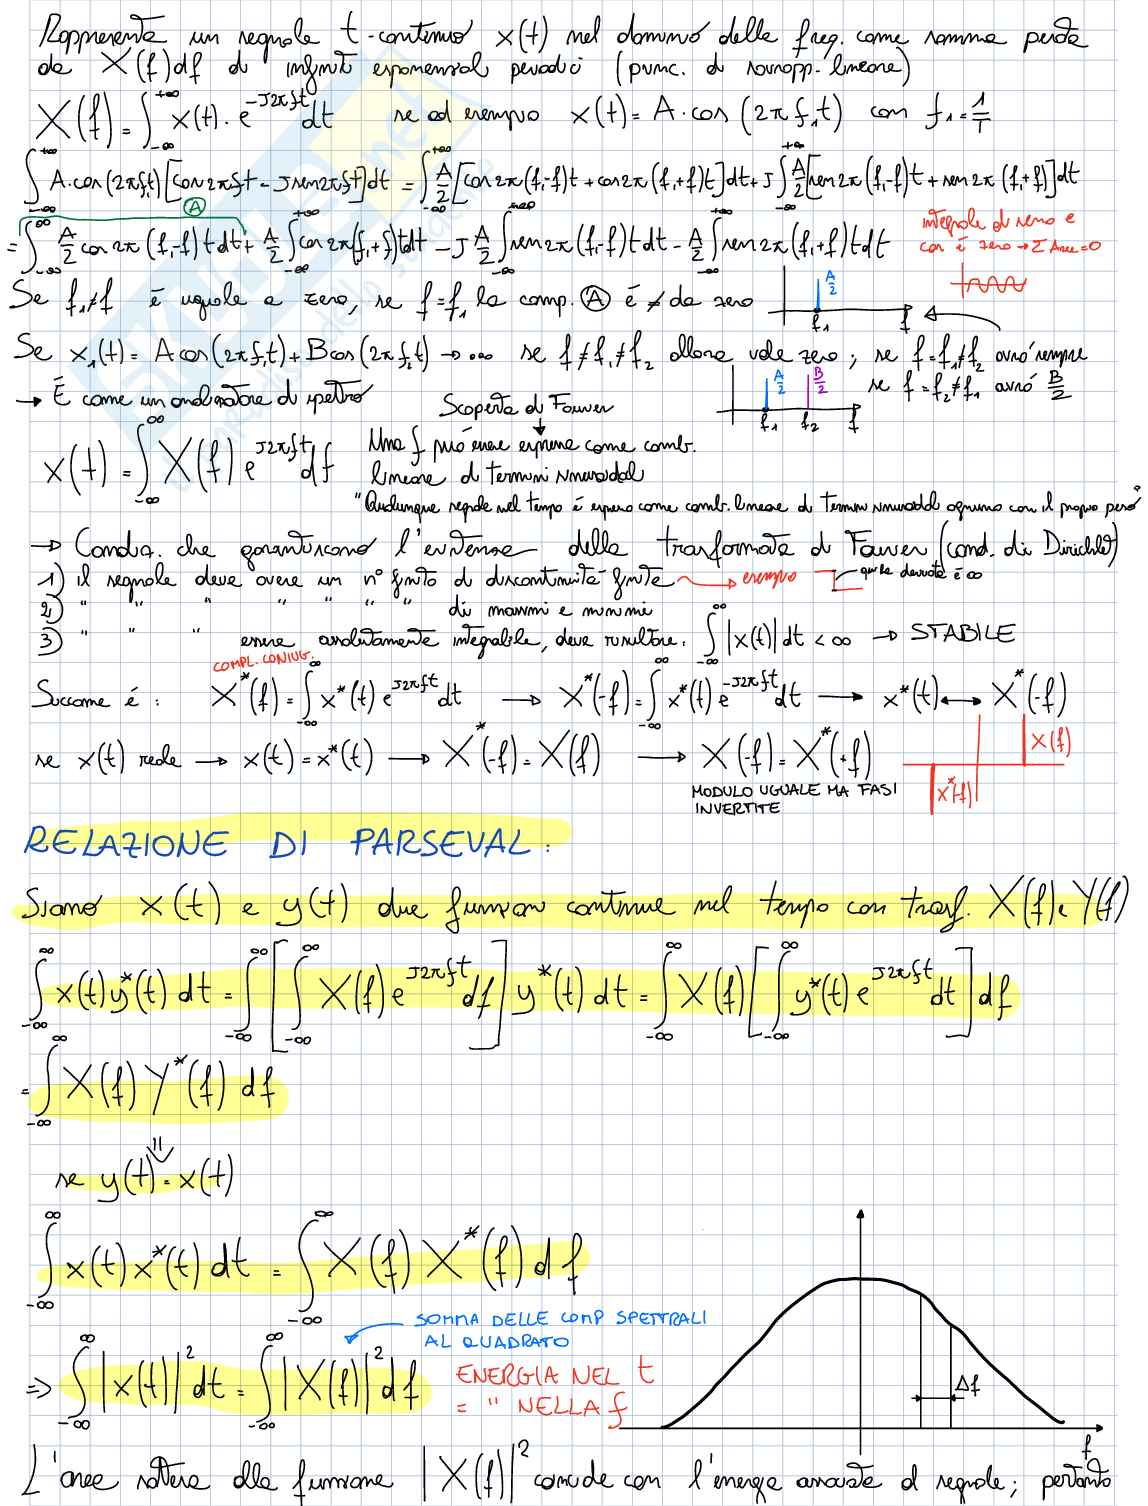 Rappresenta un segnale t-continuo x(t) nel dominio delle freq. come somma pesata
da X(f)df di infiniti esponenziali periodici (princ. di sovrapp. lineare)
X(f) = ∫_{-∞}^{+∞} x(t)·e^{-J2πft} dt se ad esempio x(t) = A·cos(2πf₁t) con f₁ = 1/T
∫_{-∞}^{+∞} A·cos(2πf₁t)[cos2πft - Jsen2πft]dt = ∫_{-∞}^{+∞} A/2 [cos2π(f₁-f)t + cos2π(f₁+f)t]dt + J∫_{-∞}^{+∞} A/2 [sen2π(f₁-f)t + sen2π(f₁+f)]dt
Ⓐ
= ∫_{-∞}^{∞} A/2 cos2π(f₁-f)t dt + A/2 ∫_{-∞}^{+∞} cos2π(f₁+f)t dt - J A/2 ∫_{-∞}^{+∞} sen2π(f₁-f)t dt - A/2 ∫_{-∞}^{+∞} sen2π(f₁+f)t dt
integrale di seno e
cos è zero → Σ Aree=0
Se f₁≠f è uguale a zero, se f=f₁ la comp. Ⓐ è ≠ da zero
A/2
f₁ f
Se x₁(t) = Acos(2πf₁t) + Bcos(2πf₂t) → ... se f≠f₁≠f₂ allora vale zero; se f=f₁≠f₂ avrò sempre
A/2 B/2
f₁ f₂ f
se f=f₂≠f₁ avrò B/2
→ È come un analizzatore di spettro
Scoperta di Fourier
x(t) = ∫_{-∞}^{∞} X(f) e^{J2πft} df
Una f può essere espressa come comb.
lineare di termini sinusoidali
"Qualunque segnale nel tempo è espresso come comb. lineare di termini sinusoidali ognuno con il proprio peso"
→ Condiz. che garantiscono l'esistenza della trasformata di Fourier (cond. di Dirichlet)
1) il segnale deve avere un n° finito di discontinuità finite → esempio qui la derivata è ∞
2) " " " " " " " di massimi e minimi
3) " " " essere assolutamente integrabile, deve risultare: ∫_{-∞}^{∞} |x(t)| dt < ∞ → STABILE
COMPL. CONIUG.
Siccome è: X*(f) = ∫_{-∞}^{∞} x*(t) e^{J2πft} dt → X*(-f) = ∫_{-∞}^{∞} x*(t) e^{-J2πft} dt → x*(t) ↔ X*(-f)
se x(t) reale → x(t) = x*(t) → X*(-f) = X(f) → X(-f) = X*(+f)
X(f)
X*(-f)
MODULO UGUALE MA FASI
INVERTITE
RELAZIONE DI PARSEVAL:
Siano x(t) e y(t) due funzioni continue nel tempo con trasf. X(f) e Y(f)
∫_{-∞}^{∞} x(t)y*(t) dt = ∫_{-∞}^{∞} [∫_{-∞}^{∞} X(f) e^{J2πft} df] y*(t) dt = ∫_{-∞}^{∞} X(f) [∫_{-∞}^{∞} y*(t) e^{J2πft} dt] df
= ∫_{-∞}^{∞} X(f) Y*(f) df
se y(t) = x(t)
∫_{-∞}^{∞} x(t) x*(t) dt = ∫_{-∞}^{∞} X(f) X*(f) df
SOMMA DELLE COMP SPETTRALI
AL QUADRATO
=> ∫_{-∞}^{∞} |x(t)|² dt = ∫_{-∞}^{∞} |X(f)|² df
ENERGIA NEL t
= " NELLA f
Δf
f
L'area sottesa alla funzione |X(f)|² coincide con l'energia associata al segnale; pertanto